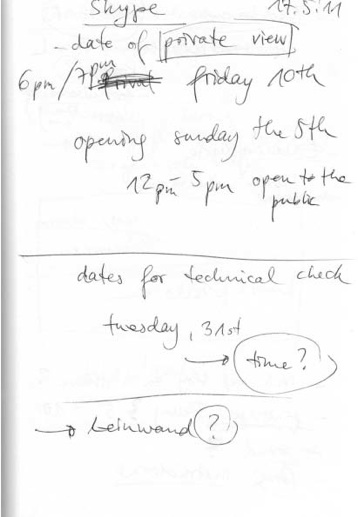 Skype 17.5.11
- date of private view
6pm/7pm friday 10th
opening sunday the 5th
12pm - 5pm open to the
public
dates for technical check
tuesday, 31st
→ time?
→ Leinwand ?